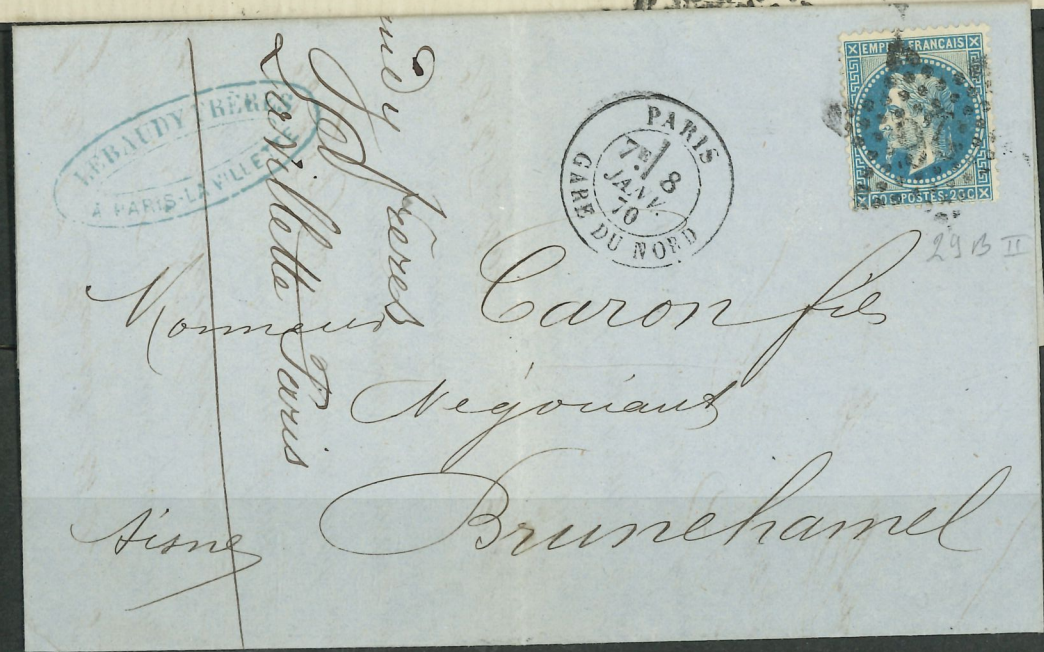 LEBAUDY FRÈRES
A PARIS-LA VILLETTE
frères
Lavillette Paris
PARIS
7E
8
JANV.
70
GARE DU NORD
EMPIRE FRANCAIS
POSTES 20C
29 B II
Monsieur Caron fils
Négociant
Brunehamel
Aisne